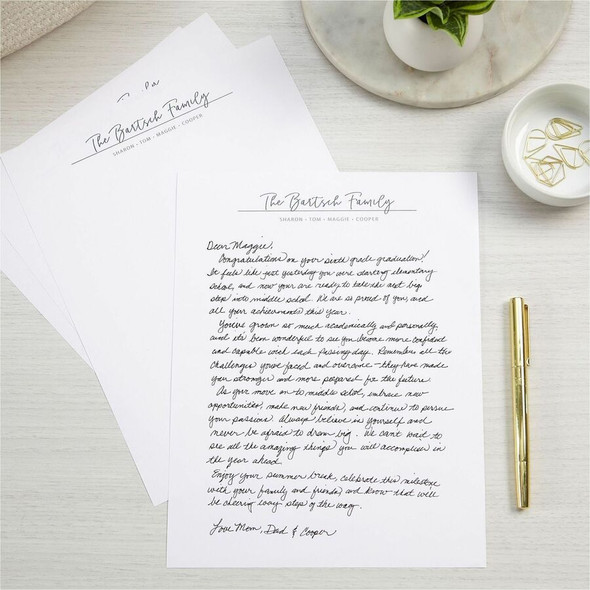 The Bartsch Family
SHARON • TOM • MAGGIE • COOPER
The Bartsch Family
SHARON • TOM • MAGGIE • COOPER
Dear Maggie,
Congratulations on your sixth grade graduation!
It feels like just yesterday you were starting elementary
school, and now your are ready to take the next big
step into middle school. We are so proud of you, and
all your achievements this year.
You've grown so much academically and personally,
and it's been wonderful to see you become more confident
and capable with each passing day. Remember all the
challenges you've faced and overcome – they have made
you stronger and more prepared for the future.
As you move on to middle school, embrace new
opportunities, make new friends, and continue to pursue
your passions. Always believe in yourself and
never be afraid to dream big. We can't wait to
see all the amazing things you will accomplish in
the year ahead.
Enjoy your summer break, celebrate this milestone
with your family and friends, and know that we'll
be cheering you every step of the way.
Love Mom, Dad & Cooper